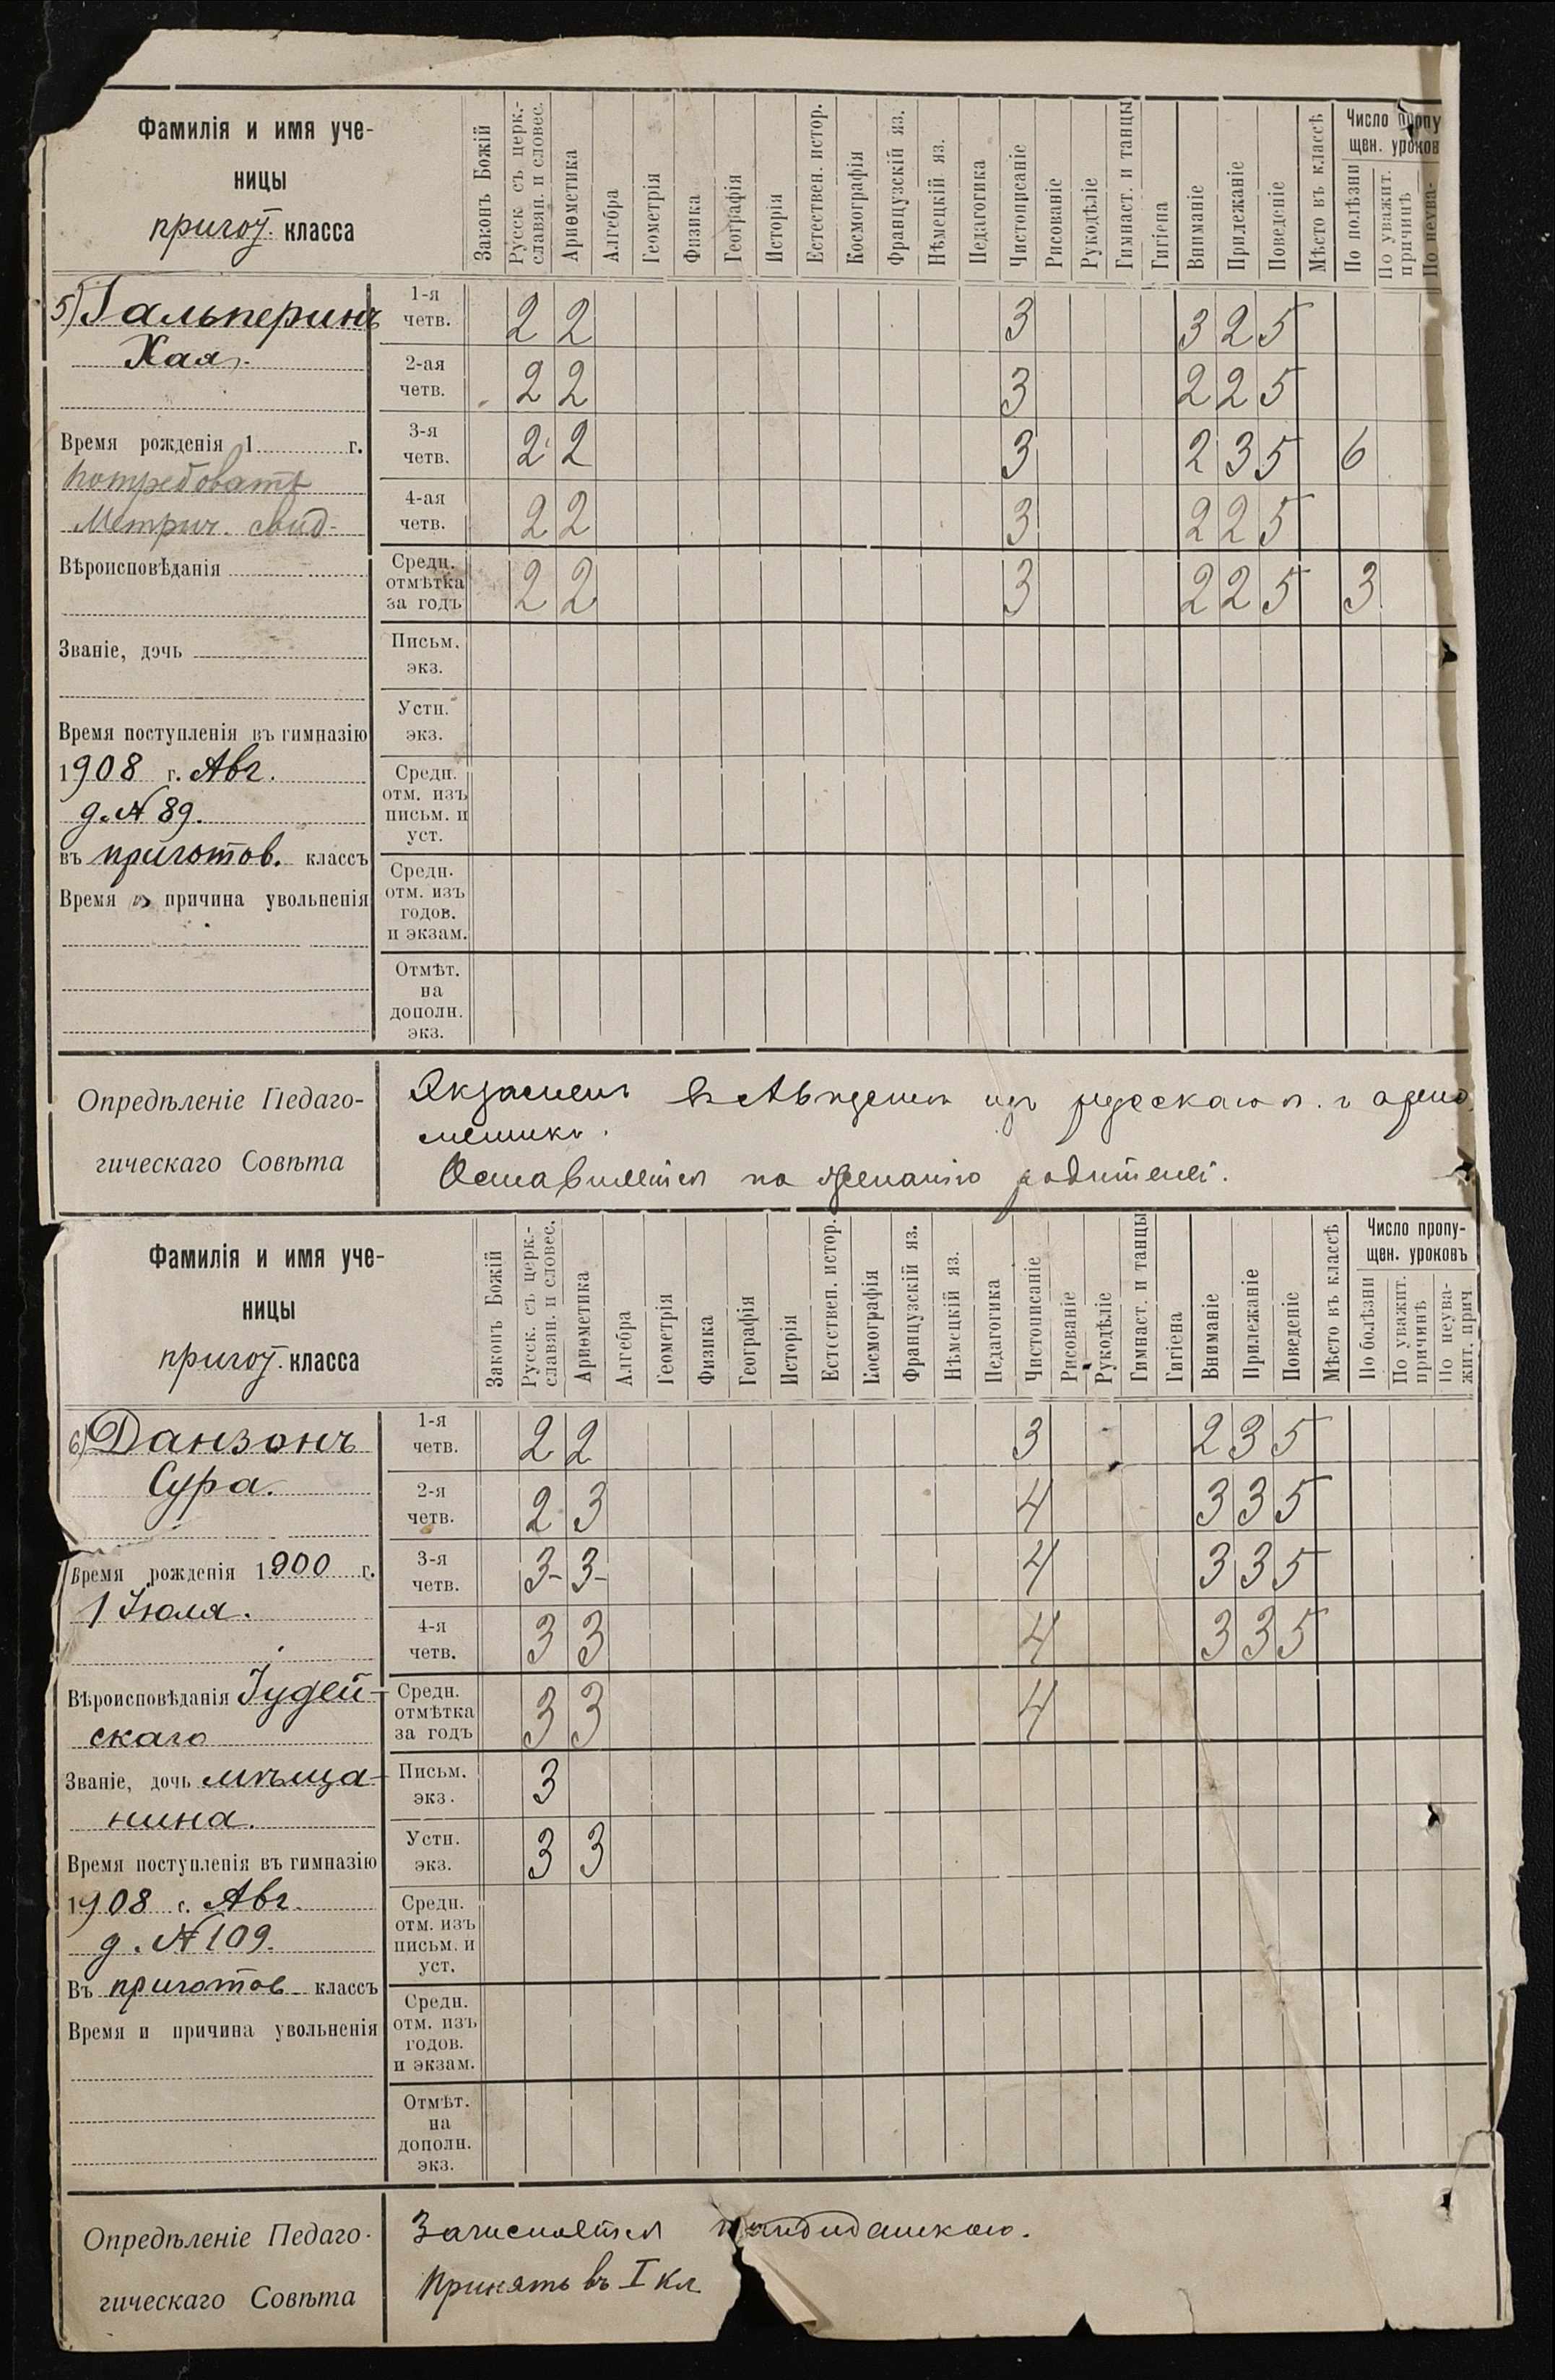 Фамилія и имя уче-
ницы
пригот. класса
Законъ Божій
Русск съ церк.-
славян. и словес.
Ариѳметика
Алгебра
Геометрія
Физика
Географія
Исторія
Естествен. истор.
Космографія
Французскій яз.
Нѣмецкій яз.
Педагогика
Чистописаніе
Рисованіе
Рукодѣліе
Гимнаст. и танцы
Гигіена
Вниманіе
Прилежаніе
Поведеніе
Мѣсто въ классѣ
Число пропу
щен. уроков
По болѣзни
По уважит.
причинѣ
По неува-
5) Гальперинъ
Хая.
Время рожденія 1 г.
потребовать
Метрич. свид-
Вѣроисповѣданія
Званіе, дочь
Время поступленія въ гимназію
1908 г. Авг.
д. № 89.
въ приготов. классъ
Время и причина увольненія
1-я четв. 2 2 3 3 2 5
2-ая четв. 2 2 3 2 2 5
3-я четв. 2 2 3 2 3 5 6
4-ая четв. 2 2 3 2 2 5
Средн. отмѣтка за годъ 2 2 3 2 2 5 3
Письм. экз.
Устн. экз.
Средн. отм. изъ письм. и уст.
Средн. отм. изъ годов. и экзам.
Отмѣт. на дополн. экз.
Опредѣленіе Педаго-
гическаго Совѣта
Экзаменъ въ Августѣ изъ русскаго яз. и ариѳ
метики.
Оставляется по желанію родителей.
Фамилія и имя уче-
ницы
пригот. класса
Законъ Божій
Русск. съ церк.-
славян. и словес.
Ариѳметика
Алгебра
Геометрія
Физика
Географія
Исторія
Естествен. истор.
Космографія
Французскій яз.
Нѣмецкій яз.
Педагогика
Чистописаніе
Рисованіе
Рукодѣліе
Гимнаст. и танцы
Гигіена
Вниманіе
Прилежаніе
Поведеніе
Мѣсто въ классѣ
Число пропу-
щен. уроковъ
По болѣзни
По уважит.
причинѣ
По неува-
жит. прич.
6) Данзонъ
Сура.
Время рожденія 1900 г.
1 Іюля.
Вѣроисповѣданія Іудей-
скаго
Званіе, дочь мѣща-
нина.
Время поступленія въ гимназію
1908 г. Авг.
д. № 109.
Въ приготов. классъ
Время и причина увольненія
1-я четв. 2 2 3 2 3 5
2-я четв. 2 3 4 3 3 5
3-я четв. 3- 3- 4 3 3 5
4-я четв. 3 3 4 3 3 5
Средн. отмѣтка за годъ 3 3 4
Письм. экз. 3
Устн. экз. 3 3
Средн. отм. изъ письм. и уст.
Средн. отм. изъ годов. и экзам.
Отмѣт. на дополн. экз.
Опредѣленіе Педаго-
гическаго Совѣта
Зачисляется кандидаткою.
Принять въ I кл